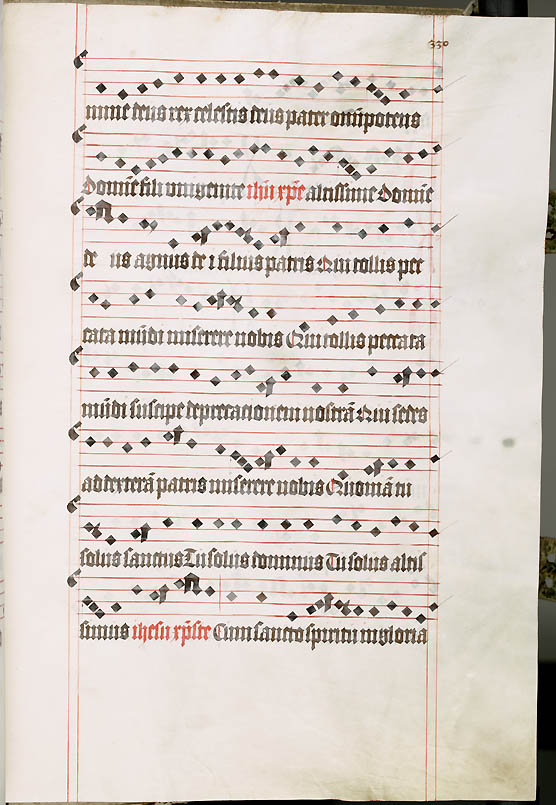 330
mine deus rex celestis deus pater omīpotens
Domīe fili unigenite ihū xp̄e altissime Domīe
de us agnus de i filius patris Qui tollis pec
cata mūdi miserere nobis Qui tollis peccata
mūdi suscipe deprecationem nostrā Qui sedes
ad dexterā patris miserere nobis Quoniā tu
solus sanctus Tu solus dominus Tu solus altis
simus ihesu xp̄ste Cum sancto spiritu in gloria